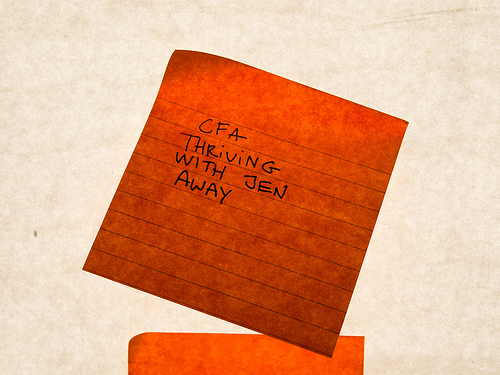 CFA
THRIVING
WITH JEN
AWAY